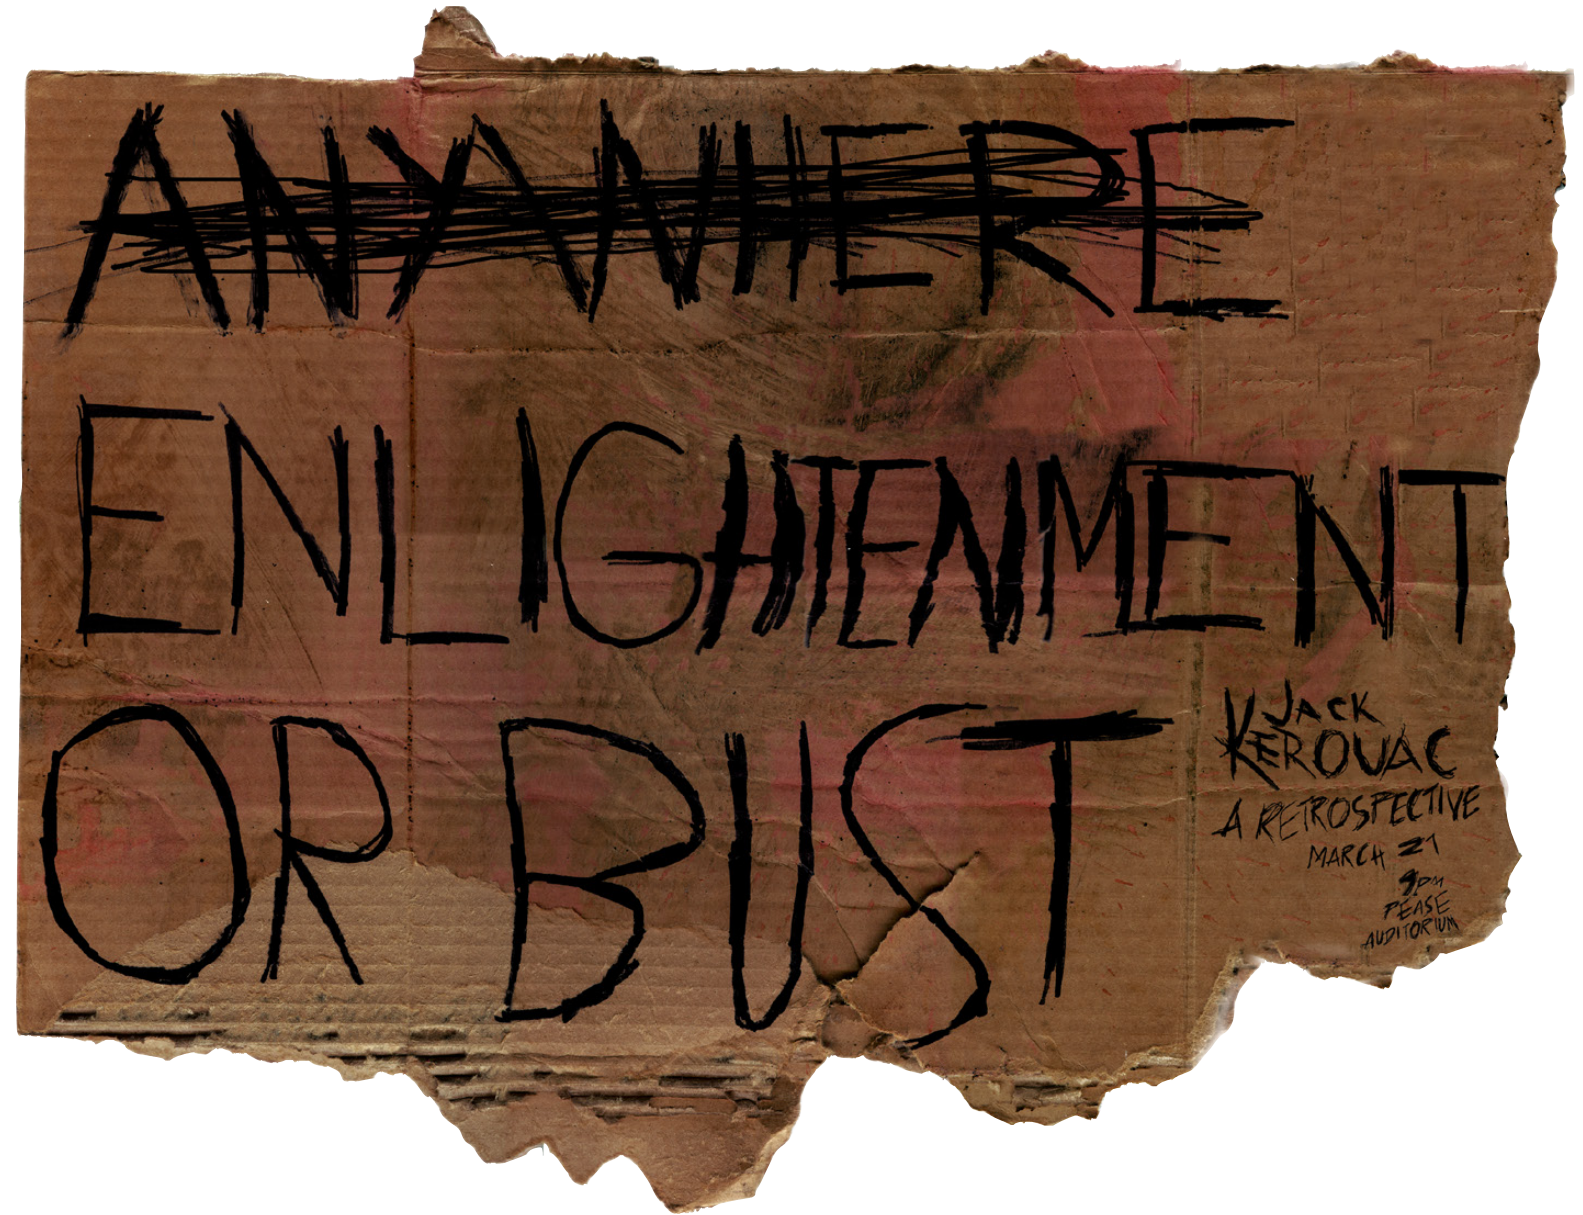 ANYWHERE
ENLIGHTENMENT
OR BUST
JACK
KEROUAC
A RETROSPECTIVE
MARCH 21
9PM
PEASE
AUDITORIUM